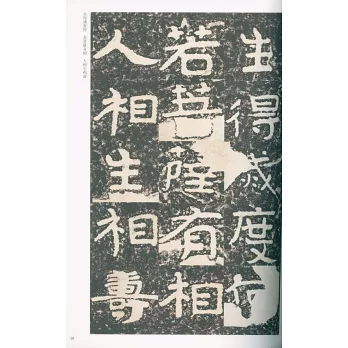 生得滅度何
若菩薩有相
人相生相壽